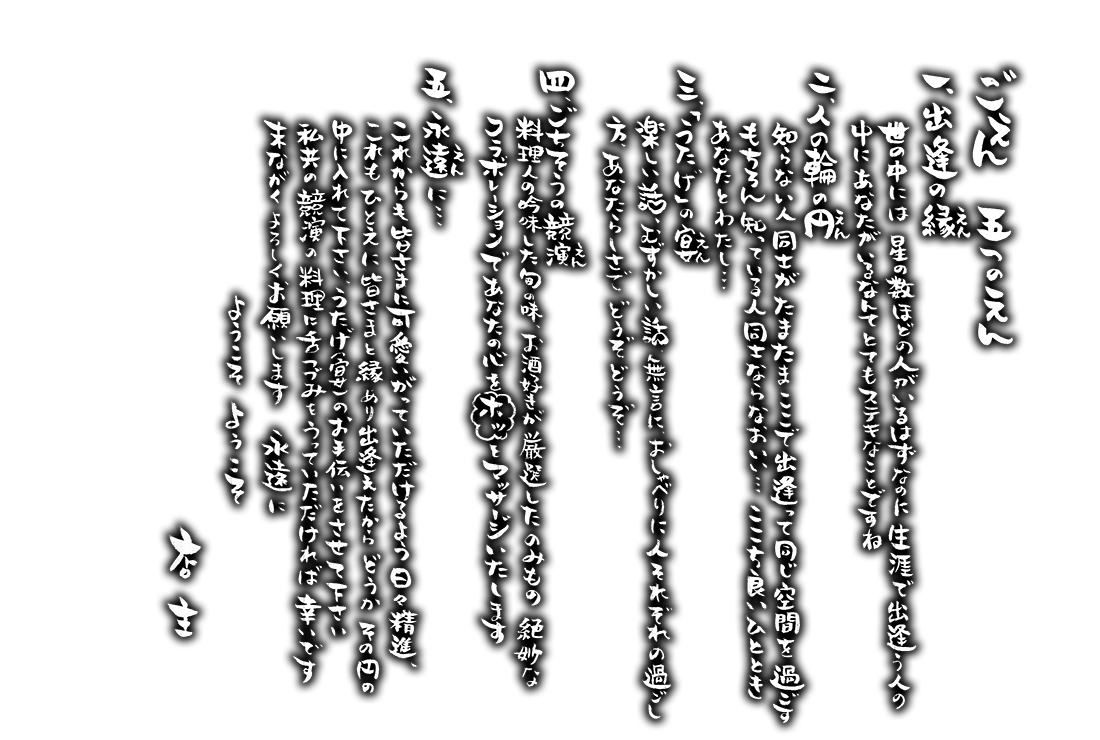 ごえん 五つのえん
一、出逢の縁えん
世の中には 星の数ほどの人がいるはずなのに 生涯で出逢う人の
中にあなたがいるなんてとてもステキなことですね
二、人の輪の円えん
知らない人同士がたまたまここで出逢って同じ空間を過ごす
もちろん 知っている人同士ならなおいい… ここち良いひととき
あなたとわたし…
三、「うたげ」の宴えん
楽しい話、むずかしい話、無言に おしゃべりに 人それぞれの過ごし
方、あなたらしさで どうぞどうぞ…
四、ごちそうの競演えん
料理人の吟味した旬の味、お酒好きが厳選したのみもの 絶妙な
コラボレーションであなたの心をホッとマッサージいたします
五、永遠えんに…
これからも皆さまに可愛いがっていただけるよう日々精進、
これも ひとえに皆さまと縁あり出逢えたから どうか その円の
中に入れて下さい、うたげ(宴)のお手伝いをさせて下さい
私共の競演の料理に舌づつみをうっていただければ 幸いです
末ながくよろしくお願いします 永遠に
ようこそ ようこそ
店主